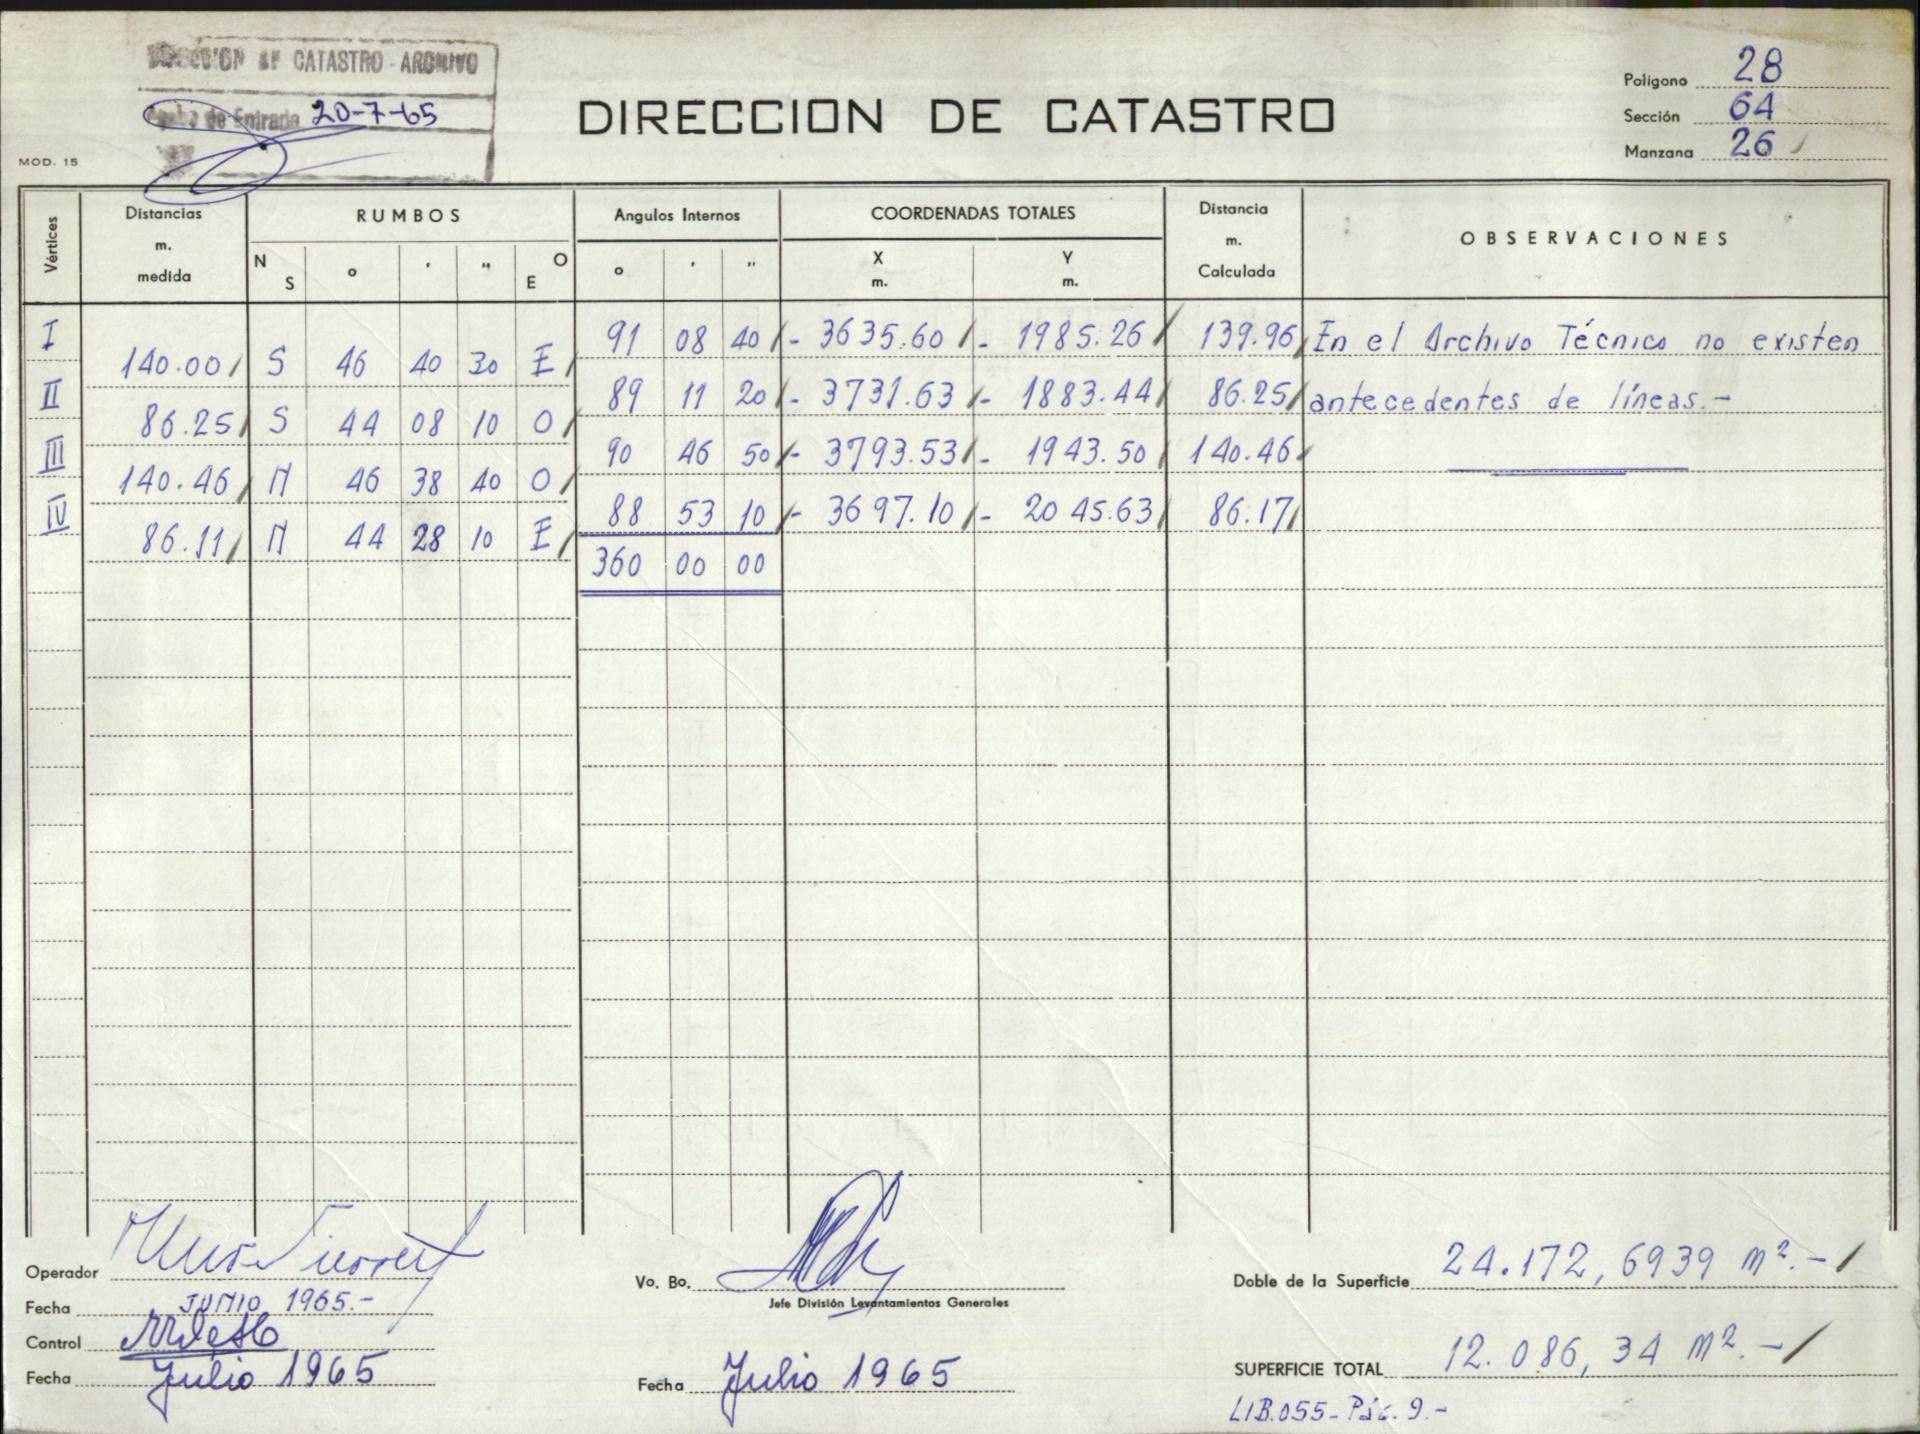 DIRECCION DE CATASTRO - ARCHIVO
Fecha de Entrada 20-7-65
DIRECCION DE CATASTRO
Polígono 28
Sección 64
Manzana 26
MOD. 15
Vértices Distancias m. medida RUMBOS Angulos Internos COORDENADAS TOTALES Distancia m. Calculada OBSERVACIONES
N S o ' " O E o ' " X m. Y m.
I 91 08 40 - 3635.60 - 1985.26 139.96 En el Archivo Técnico no existen
140.00 S 46 40 30 E
II 89 11 20 - 3731.63 - 1883.44 86.25 antecedentes de líneas.-
86.25 S 44 08 10 O
III 90 46 50 - 3793.53 - 1943.50 140.46
140.46 N 46 38 40 O
IV 88 53 10 - 3697.10 - 2045.63 86.17
86.11 N 44 28 10 E
360 00 00
Operador
Fecha JUNIO 1965.-
Control
Fecha Julio 1965
Vo. Bo.
Jefe División Levantamientos Generales
Fecha Julio 1965
Doble de la Superficie 24.172,6939 m².-
SUPERFICIE TOTAL 12.086,34 m².-
LIB.055- Pág. 9.-